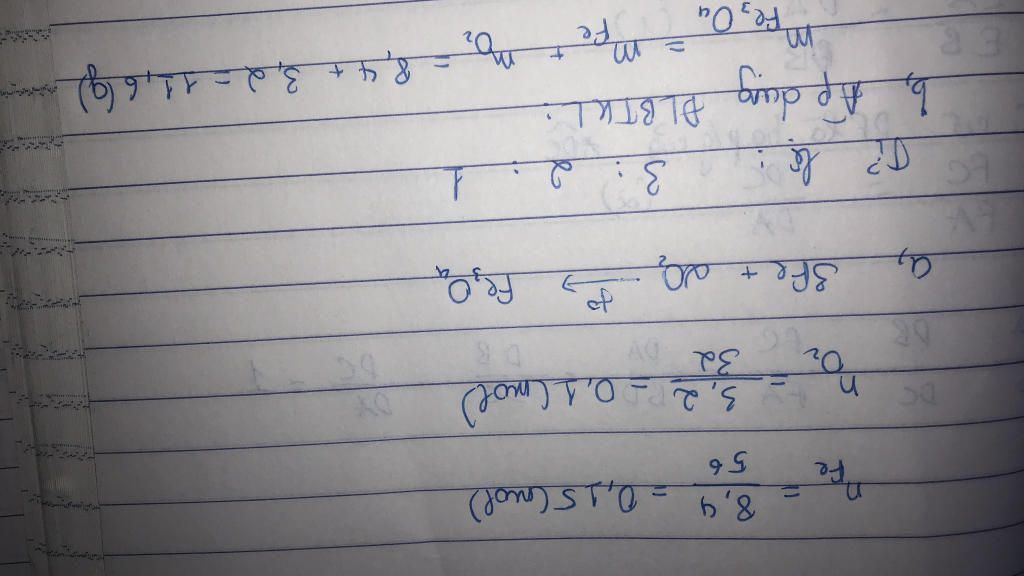 n Fe = 8,4 / 56 = 0,15 (mol)
n O2 = 3,2 / 32 = 0,1 (mol)
a, 3Fe + 2O2 t° → Fe3O4
Tỉ lệ: 3 : 2 : 1
b, Áp dụng ĐLBTKL:
m Fe3O4 = m Fe + m O2 = 8,4 + 3,2 = 11,6 (g)